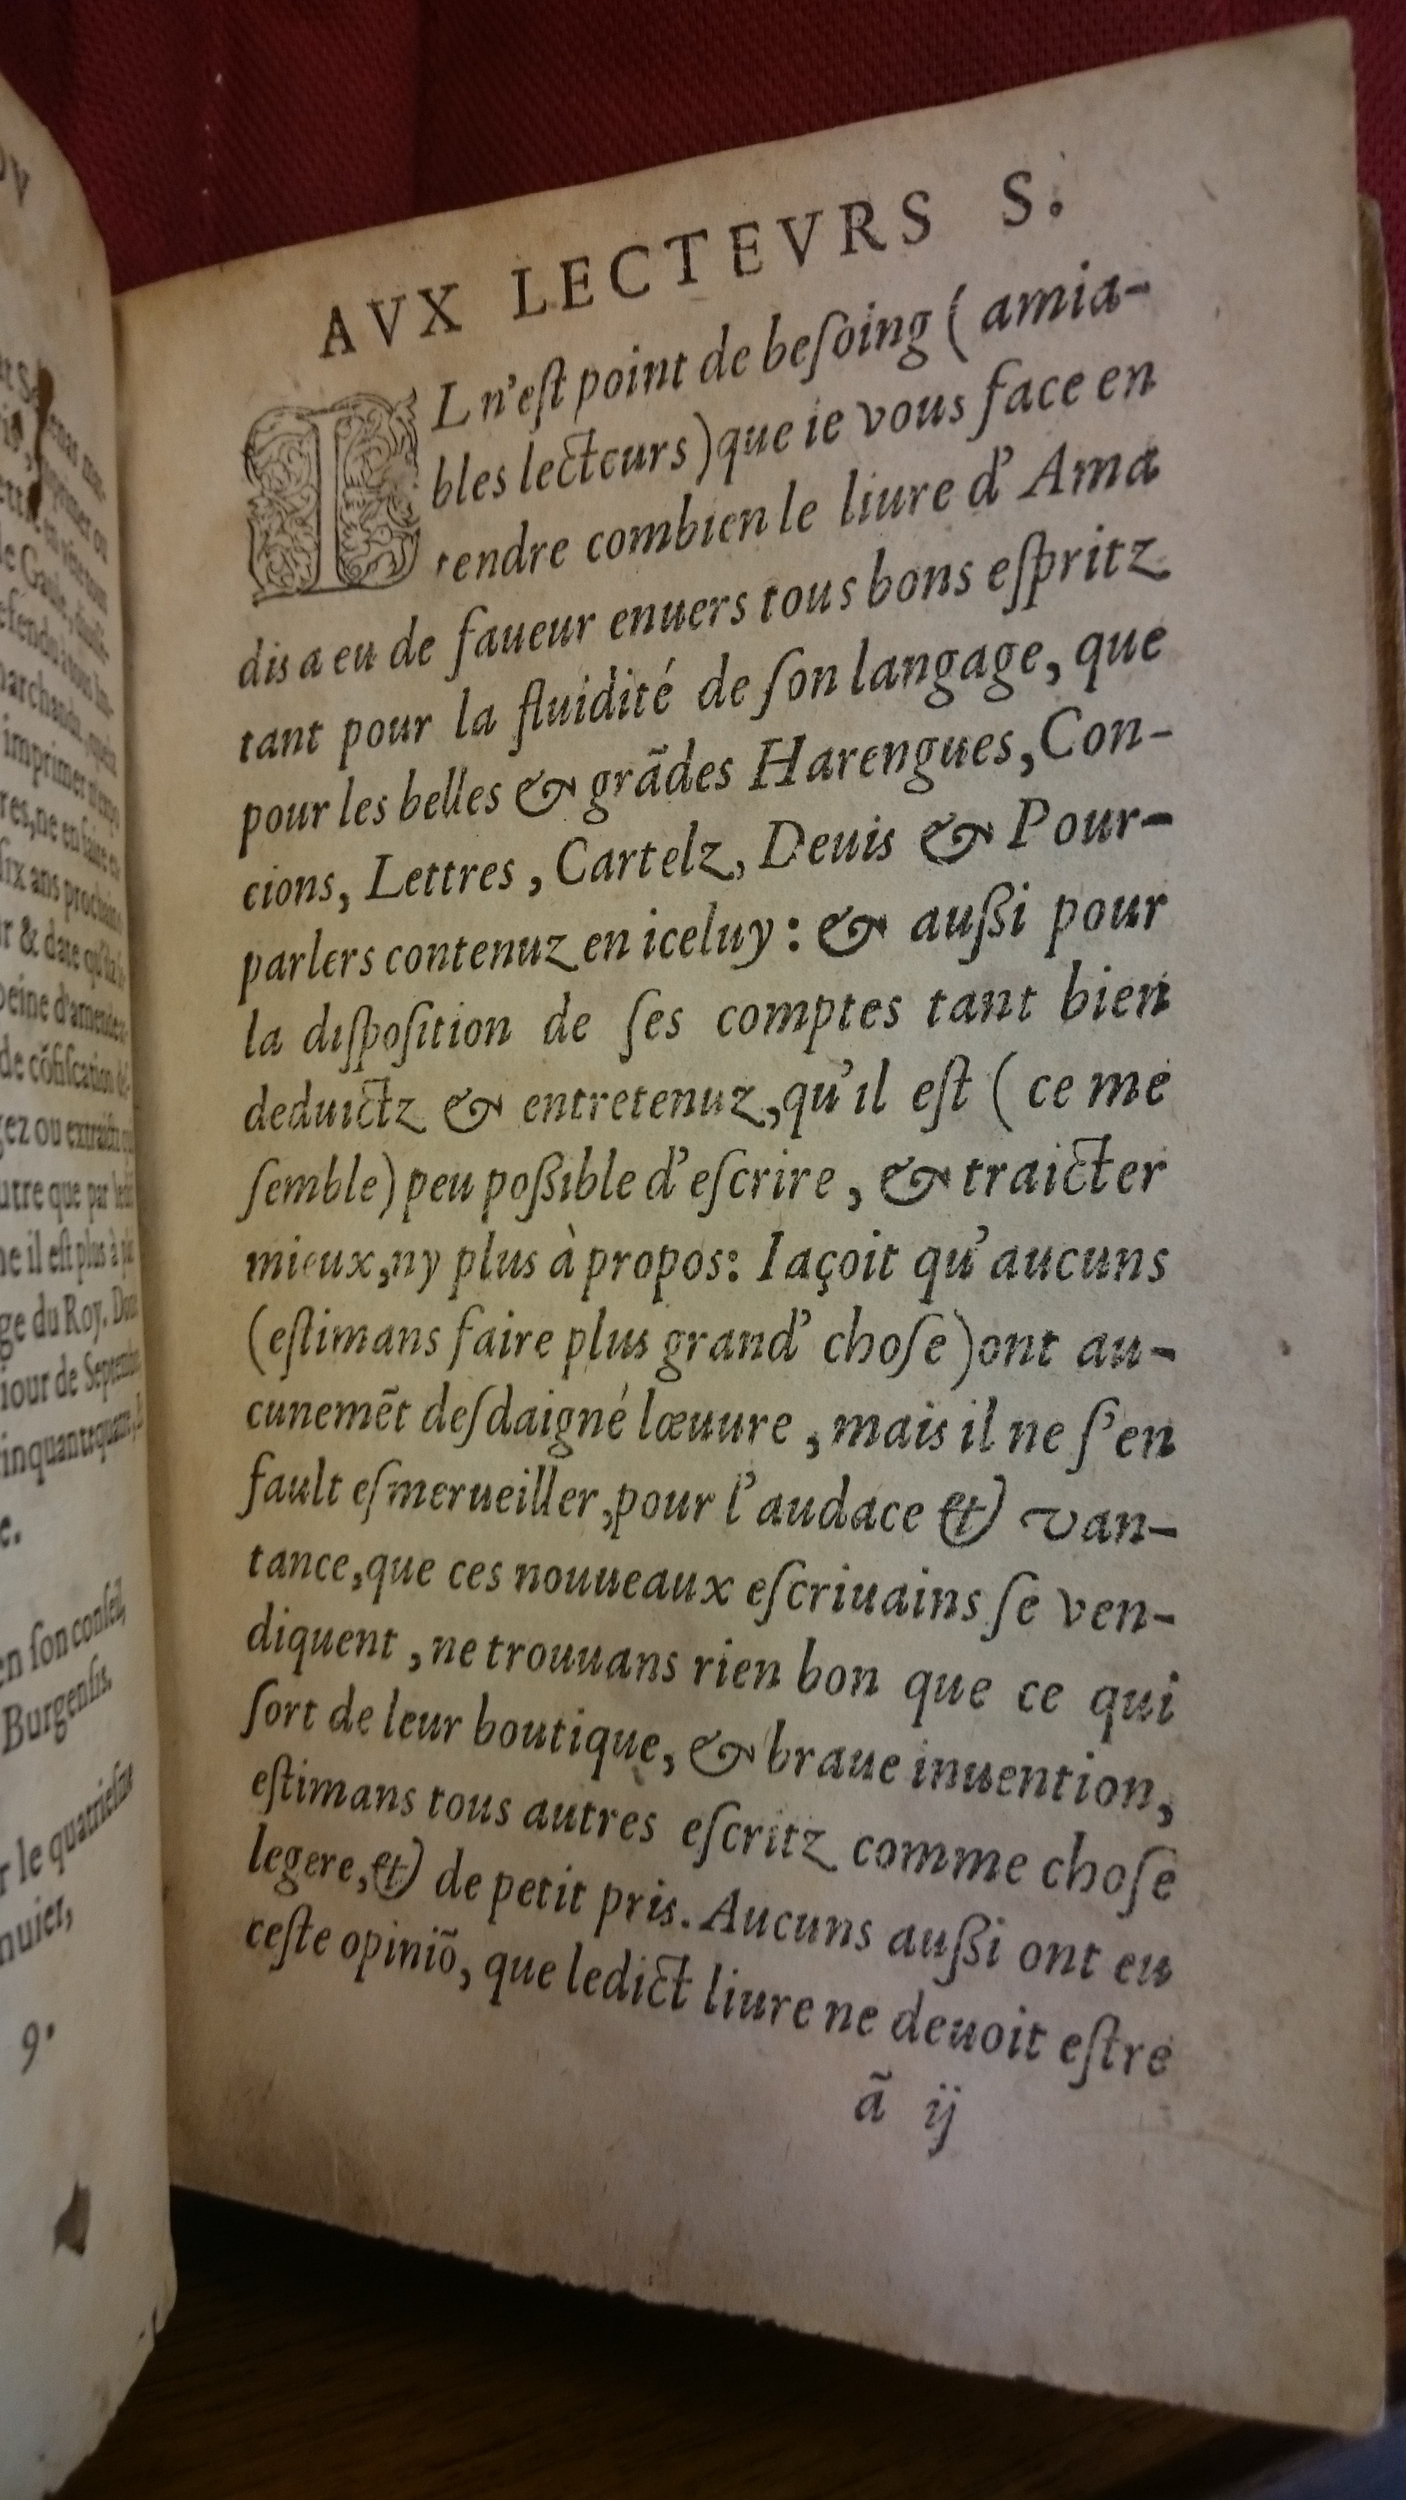 AVX LECTEVRS S.
IL n'eſt point de beſoing ( amia-
bles lecteurs ) que ie vous face en
rendre combien le liure d'Ama
dis a eu de faueur enuers tous bons eſpritz
tant pour la fluidité de ſon langage, que
pour les belles & grãdes Harengues, Con-
cions, Lettres, Cartelz, Deuis & Pour-
parlers contenuz en iceluy : & außi pour
la diſpoſition de ſes comptes tant bien
deduictz & entretenuz, qu'il eſt ( ce me
ſemble) peu poßible d'eſcrire, & traicter
mieux, ny plus à propos: Iaçoit qu'aucuns
(eſtimans faire plus grand' choſe) ont au-
cunemẽt deſdaigné lœuure, mais il ne ſ'en
fault eſmerueiller, pour l'audace & van-
tance, que ces nouueaux eſcriuains ſe ven-
diquent, ne trouuans rien bon que ce qui
ſort de leur boutique, & braue inuention,
eſtimans tous autres eſcritz comme choſe
legere, & de petit pris. Aucuns außi ont eu
ceſte opiniõ, que ledict liure ne deuoit eſtre
ã ij
de Gaule,
marchands,
imprimer
res, ne en faire
ſix ans
r & date
peine
de cõfiſcation
gez ou
utre que par
ne il eſt plus à
ge du Roy.
iour de
en ſon conſeil,
Burgenſis.
r le
nuier,
9.